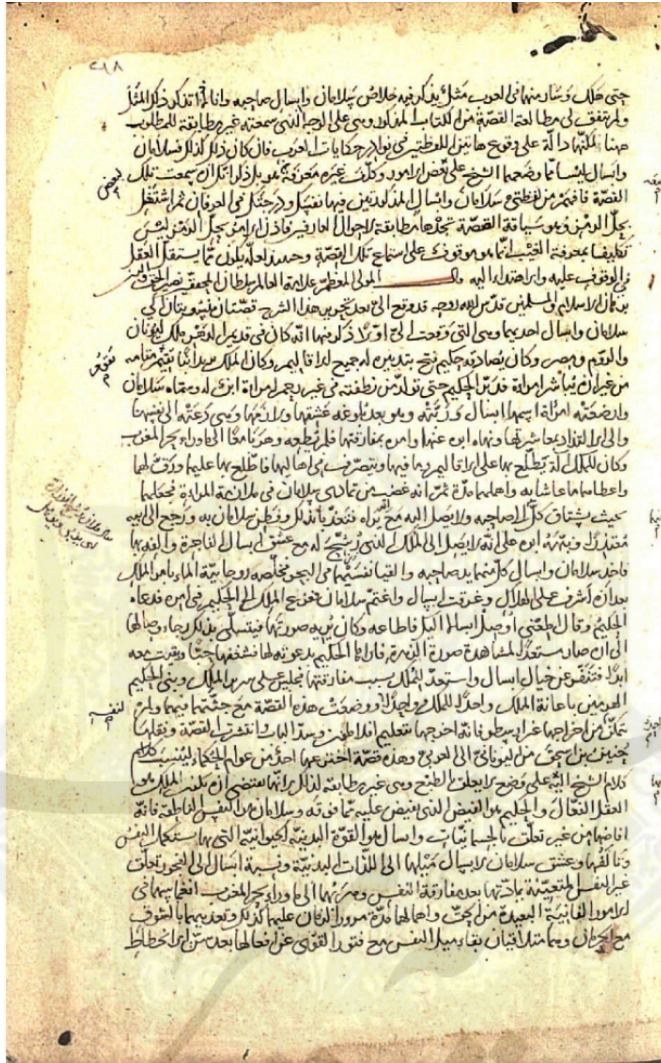 ٢١٨
حتى هلك وسار منهما في العرب مثل يذكر فيه خلاص سلامان وابسال صاحبه وانا لا اتذكر ذلك المثل
ولم يتفق لي مطالعة القصة من الكتاب المذكور وهي على الوجه الذي سمعته غير مطابقة للمطلوب
ههنا لكنها دالة على وقوع هاتين اللفظتين في نوادر حكايات العرب فان كان ذلك كذلك فسلامان
وابسال ليسا مما وضعهما الشيخ على بعض الامور وكلف غيره معرفة بل ذلك انك ان سمعت تلك
القصة فافهم من لفظتي سلامان وابسال المذكورتين فيها نفسك ودرجتك في العرفان ثم اشتغل
بحل الرمز وهو سياقة القصة تجدها مطابقة لاحوال العارفين فاذن الامر بحل الرمز ليس
تكليفا بمعرفة الغيب انما هو موقوف على استماع تلك القصة وحينئذ لعله يكون مما يستقل العقل
في الوقوف عليه والاهتداء اليه المولى المعظم علامة العالم سلطان المحققين نصير الحق والدين
برهان الاسلام والمسلمين قدس الله روحه قد وقع الي بعد تحرير هذا الشرح قصتان منسوبتان الى
سلامان وابسال احديهما وهي التي وقعت الي اولا ذكر فيها انه كان في قديم الدهر ملك ليونان
والروم ومصر وكان يصادقه حكيم فتح بتدبيره له جميع الاقاليم وكان الملك يريد ابنا يقوم مقامه
من غير ان يباشر امراة فدبر الحكيم حتى تولد من نطفته في غير رحم امراة ابن له وسماه سلامان
وارضعته امراة اسمها ابسال وربته وهو بعد بلوغه عشقها ولازمها وهي دعته الى نفسها
والى الالتذاذ بمعاشرتها ونهاه ابوه عنها وامره بمفارقتها فلم يطعه وهربا معا الى ما وراء بحر المغرب
وكان للملك آلة يطلع بها على الاقاليم وما فيها ويتصرف في اهاليها فاطلع بها عليهما ورق لهما
واعطاهما ما عاشا به واهملهما مدة ثم انه غضب من تمادي سلامان في ملازمة المراة فجعلهما
بحيث يشتاق كل الى صاحبه ولا يصل اليه مع انه يراه فتعذبا بذلك وفطن سلامان به ورجع الى ابيه
معتذرا ونبهه ابوه على انه لا يصل الى الملك الذي رشح له مع عشق ابسال الفاجرة والفه بها
فاخذ سلامان وابسال كل منهما يد صاحبه والقيا نفسيهما في البحر فخلصه روحانية الماء بامر الملك
بعد ان اشرف على الهلاك وغرقت ابسال واغتم سلامان ففزع الملك الى الحكيم في امره فدعاه
الحكيم وقال اطعني اوصل ابسال اليك فاطاعه وكان يريه صورتها فيتسلى بذلك رجاء وصالها
الى ان صار مستعدا لمشاهدة صورة الزهرة فاراها الحكيم بدعوته لها فشغفها حبا وبقيت معه
ابدا فتنفر عن خيال ابسال واستعد للملك بسبب مفارقتها فجلس على سرير الملك وبنى الحكيم
الهرمين باعانة الملك واحدا للملك وواحدا لنفسه ووضعت هذه القصة مع جثتيهما فيهما ولم
يتمكن من اخراجها غير ارسطو فانه اخرجها بتعليم افلاطون وسد الباب وانتشرت القصة ونقلها
حنين بن اسحق من اليوناني الى العربي وهذه قصة اخترعها احد من عوام الحكماء لينسب
كلام الشيخ اليه على وضع لا يعلق بالطبع وهي غير مطابقة لذلك لانها تقتضي ان يكون الملك هو
العقل الفعال والحكيم هو الفيض الذي يفيض عليه مما فوقه وسلامان هو النفس الناطقة فانه
افاضها من غير تعلق بالجسمانيات وابسال هو القوة البدنية الحيوانية التي بها تستكمل النفس
وتالفها وعشق سلامان لابسال ميلها الى اللذات البدنية ونسبة ابسال الى الفجور تعلق
غير النفس المتعينة بمادتها بعد مفارقة النفس وهربهما الى ما وراء بحر المغرب انغماسهما في
الامور الفانية البعيدة من الحق واهمالهما مدة مرور الزمان عليهما كذلك وتعذيبهما بالشوق
مع الحرمان وهما متلاقيان بقاء ميل النفس مع فتور القوى عن افعالها بعد سن الانحطاط